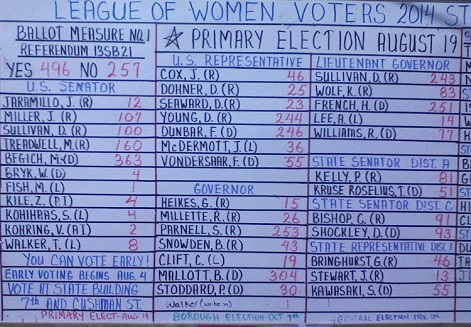 LEAGUE OF WOMEN VOTERS 2014 ST
BALLOT MEASURE NO 1
REFERENDUM 13SB21
YES 496 NO 257
U.S. SENATOR
JARAMILLO, J. (R) 12
MILLER, J. (R) 107
SULLIVAN, D. (R) 100
TREADWELL, M. (R) 160
BEGICH, M. (D) 363
BRYK, W. (D) 4
FISH, M. (L) 1
KILE, Z. (P I) 4
KOHLHAAS, S. (L) 4
KOHRING, V. (A I) 2
WALKER, T. (L) 8
YOU CAN VOTE EARLY!
EARLY VOTING BEGINS AUG. 4
VOTE AT STATE BUILDING
7TH AND CUSHMAN ST.
PRIMARY ELECT-AUG 19
PRIMARY ELECTION AUGUST 19
U.S. REPRESENTATIVE
COX, J. (R) 46
DOHNER, D. (R) 25
SEAWARD, D. (R) 23
YOUNG, D. (R) 244
DUNBAR, F. (D) 246
MCDERMOTT, J. (L) 36
VONDERSAAR, F. (D) 55
GOVERNOR
HEIKES, G. (R) 15
MILLETTE, R. (R) 26
PARNELL, S. (R) 253
SNOWDEN, B. (R) 43
CLIFT, C. (L) 19
MALLOTT, B. (D) 304
STODDARD, P. (D) 30
Walker (write in) 1
BOROUGH ELECTION-OCT 7TH
LIEUTENANT GOVERNOR
SULLIVAN, D. (R) 243
WOLF, K. (R) 83
FRENCH, H. (D) 251
LEE, A. (L) 14
WILLIAMS, R. (D) 77
STATE SENATOR DIST. A
KELLY, P. (R) 81
KRUSE ROSELIUS, T. (D) 51
STATE SENATOR DIST. C
BISHOP, C. (R) 91
SHOCKLEY, D. (D) 93
STATE REPRESENTATIVE DISE 1
BRINGHURST, G. (R) 46
STEWART, J. (R) 13
KAWASAKI, S. (D) 55
GENERAL ELECTION-NOV. 4th